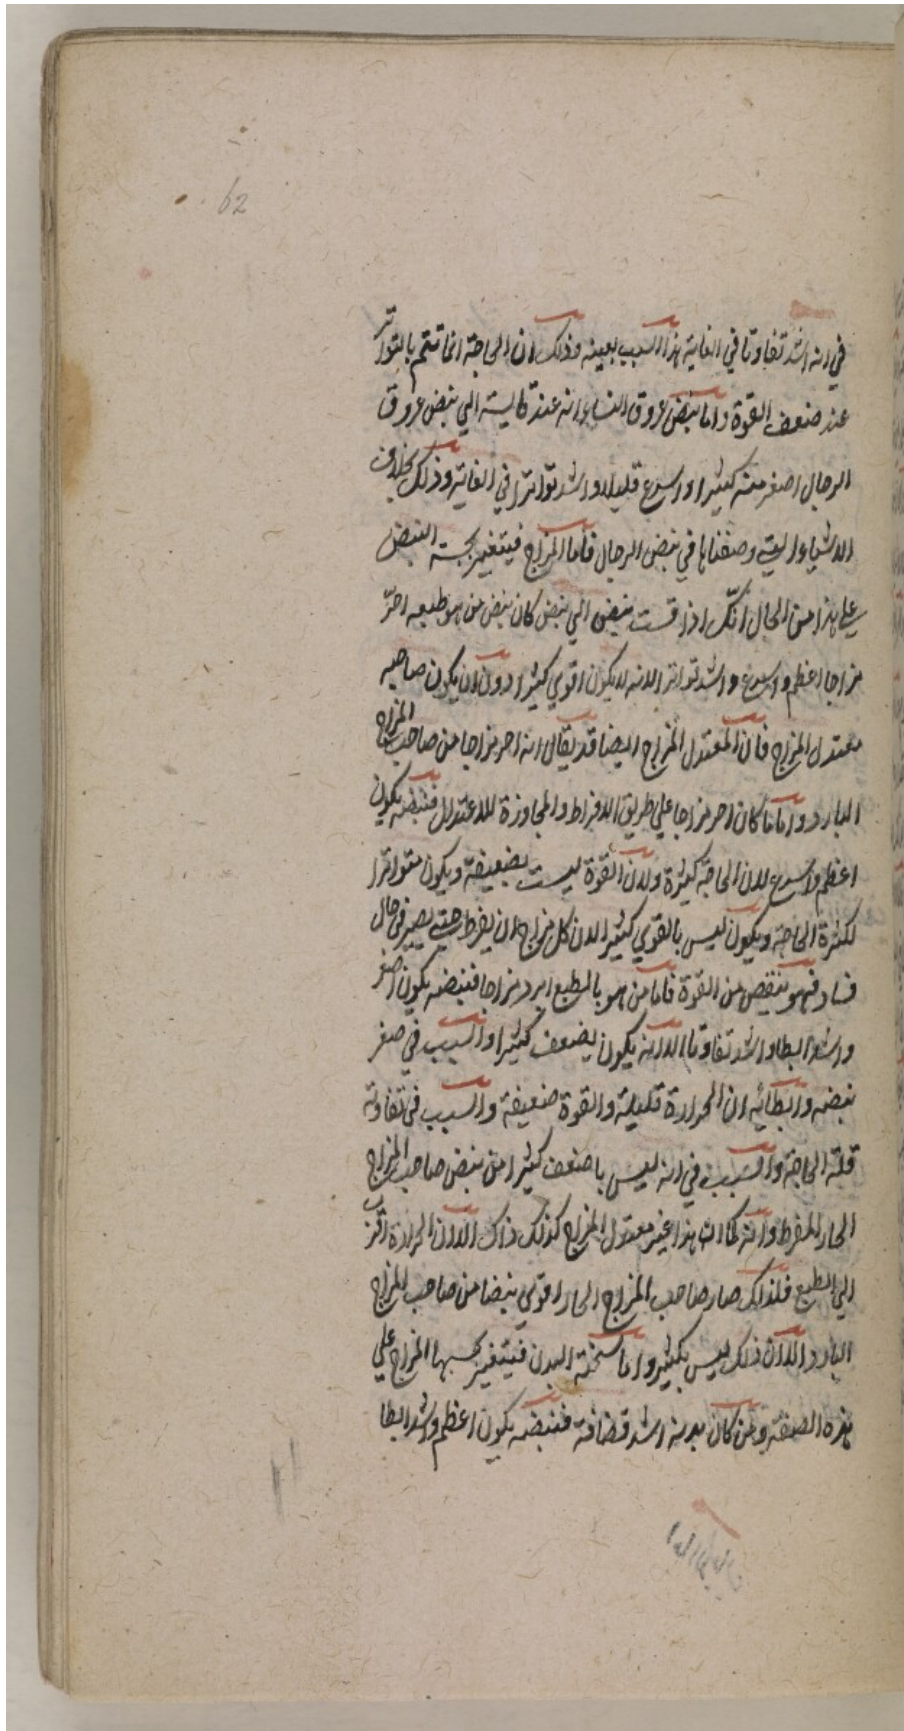 62
في انه اشد تفاوتا في الغاية هذا السبب بعينه وذلك ان الحاجة انما تتم بالتواتر
عند ضعف القوة واما نبض عروق النساء انه عند قايسته الي نبض عروق
الرجال اصغر منه كثيرا واسرع قليلا واشد تواترا في الغاية وذلك بخلاف
الاشياء التي وصفناها في نبض الرجال فاما المزاج فيتغير بحسبه النبض
علي هذا من الحال انك اذا قست نبض الي نبض كان نبض من هو طبعه احر
مزاجا اعظم واسرع واشد تواترا لانه لا يكون اقوي كثيرا دون ان يكون صاحبه
معتدل المزاج فان المعتدل المزاج ايضا قد يقال انه احر مزاجا من صاحب المزاج
البارد واما ما كان احر مزاجا علي طريق الافراط والمجاوزة للاعتدال فنبضه يكون
اعظم واسرع لان الحاجة كثيرة ولان القوة ليست بضعيفة ويكون متواترا
لكثرة الحاجة ويكون ليس بالقوي كثيرا لان كل مزاج ان يفرط حتي يصير في حال
فساد فهو ينقص من القوة فاما من هو بالطبع ابرد مزاجا فنبضه يكون اصغر
واشد ابطا واشد تفاوتا الا انه يكون يضعف كثيرا والسبب في صغر
نبضه وابطائه ان الحرارة قليلة والقوة ضعيفة والسبب في تفاوته
قلة الحاجة والسبب في انه ليس باضعف كثيرا من نبض صاحب المزاج
الحار المفرط وانه كما ان هذا غير معتدل المزاج كذلك ذاك الا ان الحرارة اقرب
الي الطبع فلذلك صار صاحب المزاج الحار اقوي نبضا من صاحب المزاج
البارد الا ان ذلك ليس بكثير واما سحنة البدن فيتغير بحسبها المزاج علي
هذه الصفة ومن كان بدنه اشد قضافة فنبضه يكون اعظم واشد ابطا